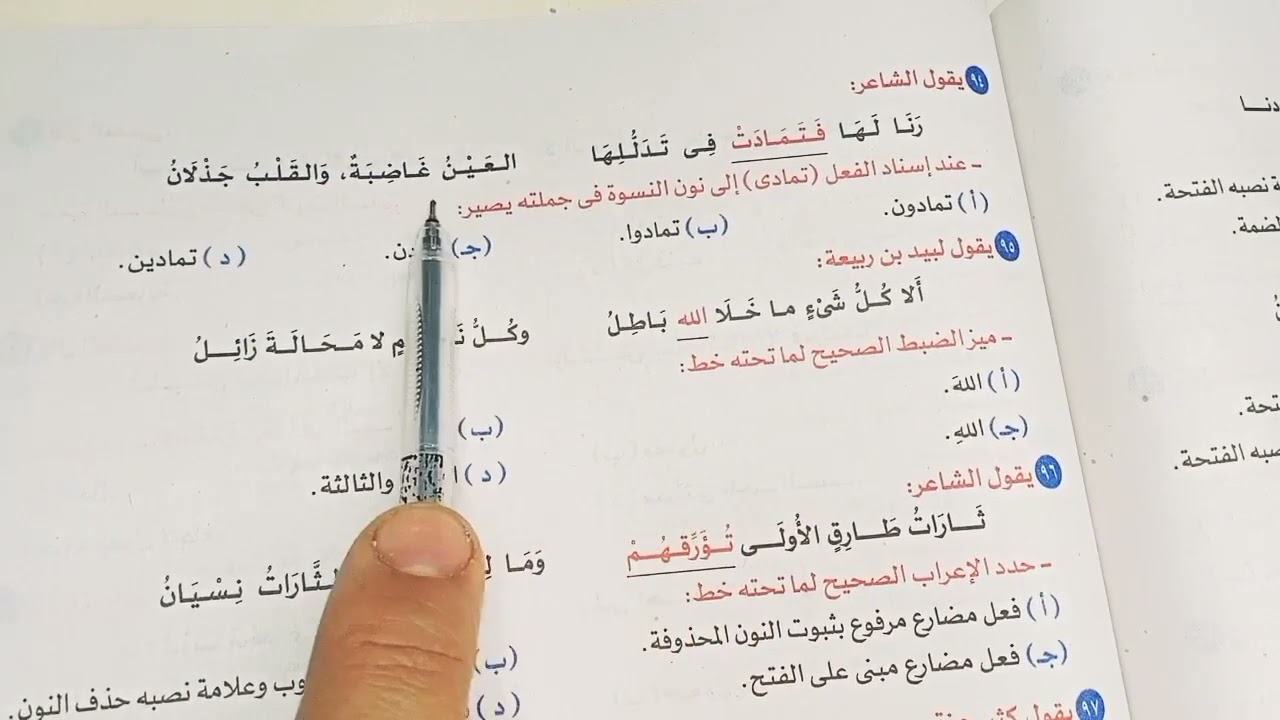 ٩٤ يقول الشاعر:
رَنَا لَهَا فَتَمَادَتْ فِى تَدَلُّلِهَا العَيْنُ غَاضِبَةٌ، وَالقَلْبُ جَذْلَانُ
- عند إسناد الفعل (تمادى) إلى نون النسوة فى جملته يصير:
(أ) تمادون. (ب) تمادوا. (جـ) (د) تمادين.
٩٥ يقول لبيد بن ربيعة:
أَلا كُلُّ شَىْءٍ ما خَلَا الله بَاطِلُ وكُلُّ لا مَحَالَةَ زَائِلُ
- ميز الضبط الصحيح لما تحته خط:
(أ) اللهَ. (ب)
(جـ) اللهِ. (د) والثالثة.
٩٦ يقول الشاعر:
ثَارَاتُ طَارِقٍ الأُولَى تُؤَرِّقُهُمْ وَمَا نِسْيَانُ
- حدد الإعراب الصحيح لما تحته خط:
(أ) فعل مضارع مرفوع بثبوت النون المحذوفة. (ب) وعلامة نصبه حذف النون.
(جـ) فعل مضارع مبنى على الفتح. (د)
٩٧ يقول
نصبه الفتحة.
نصبه الفتحة.